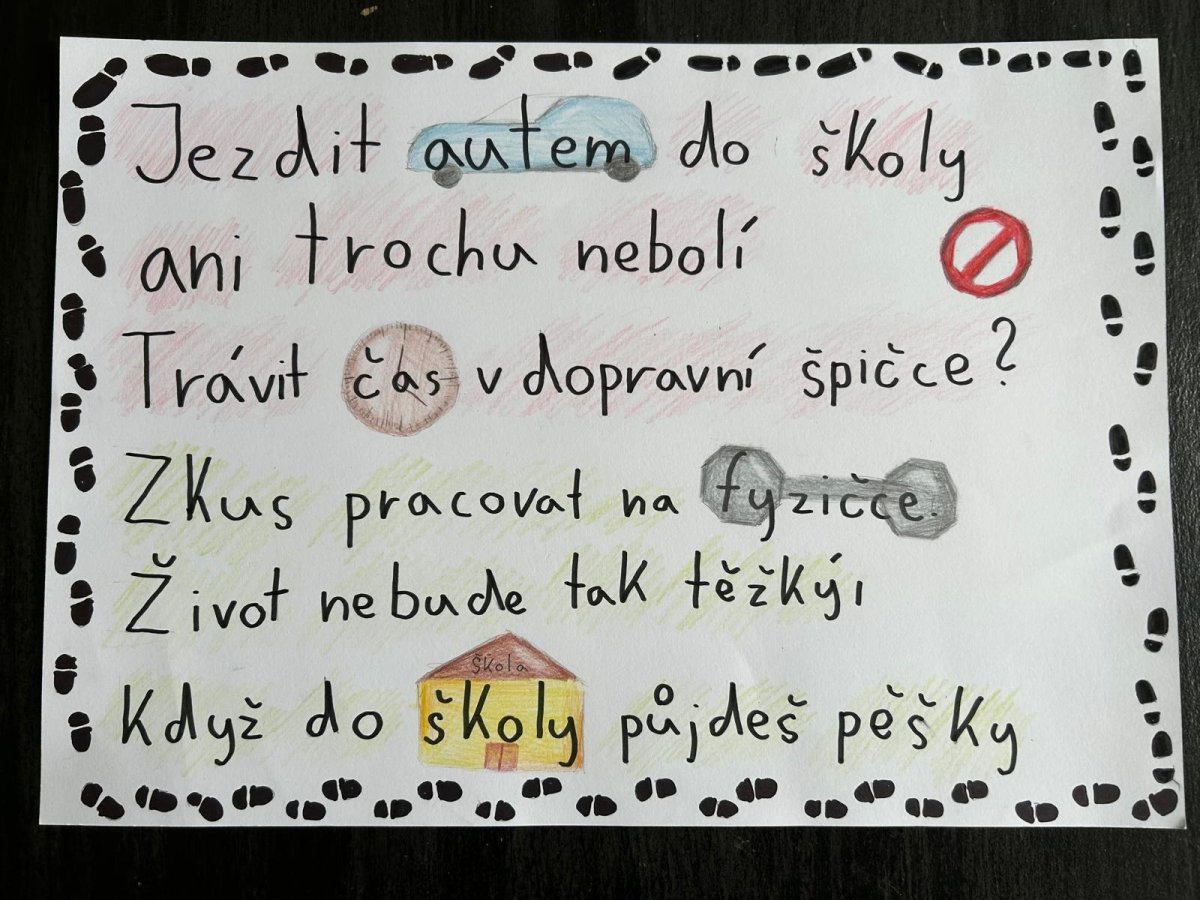 Jezdit autem do školy
ani trochu nebolí
Trávit čas v dopravní špičce?
Zkus pracovat na fyzičce.
Život nebude tak těžký,
škola
Když do školy půjdeš pěšky